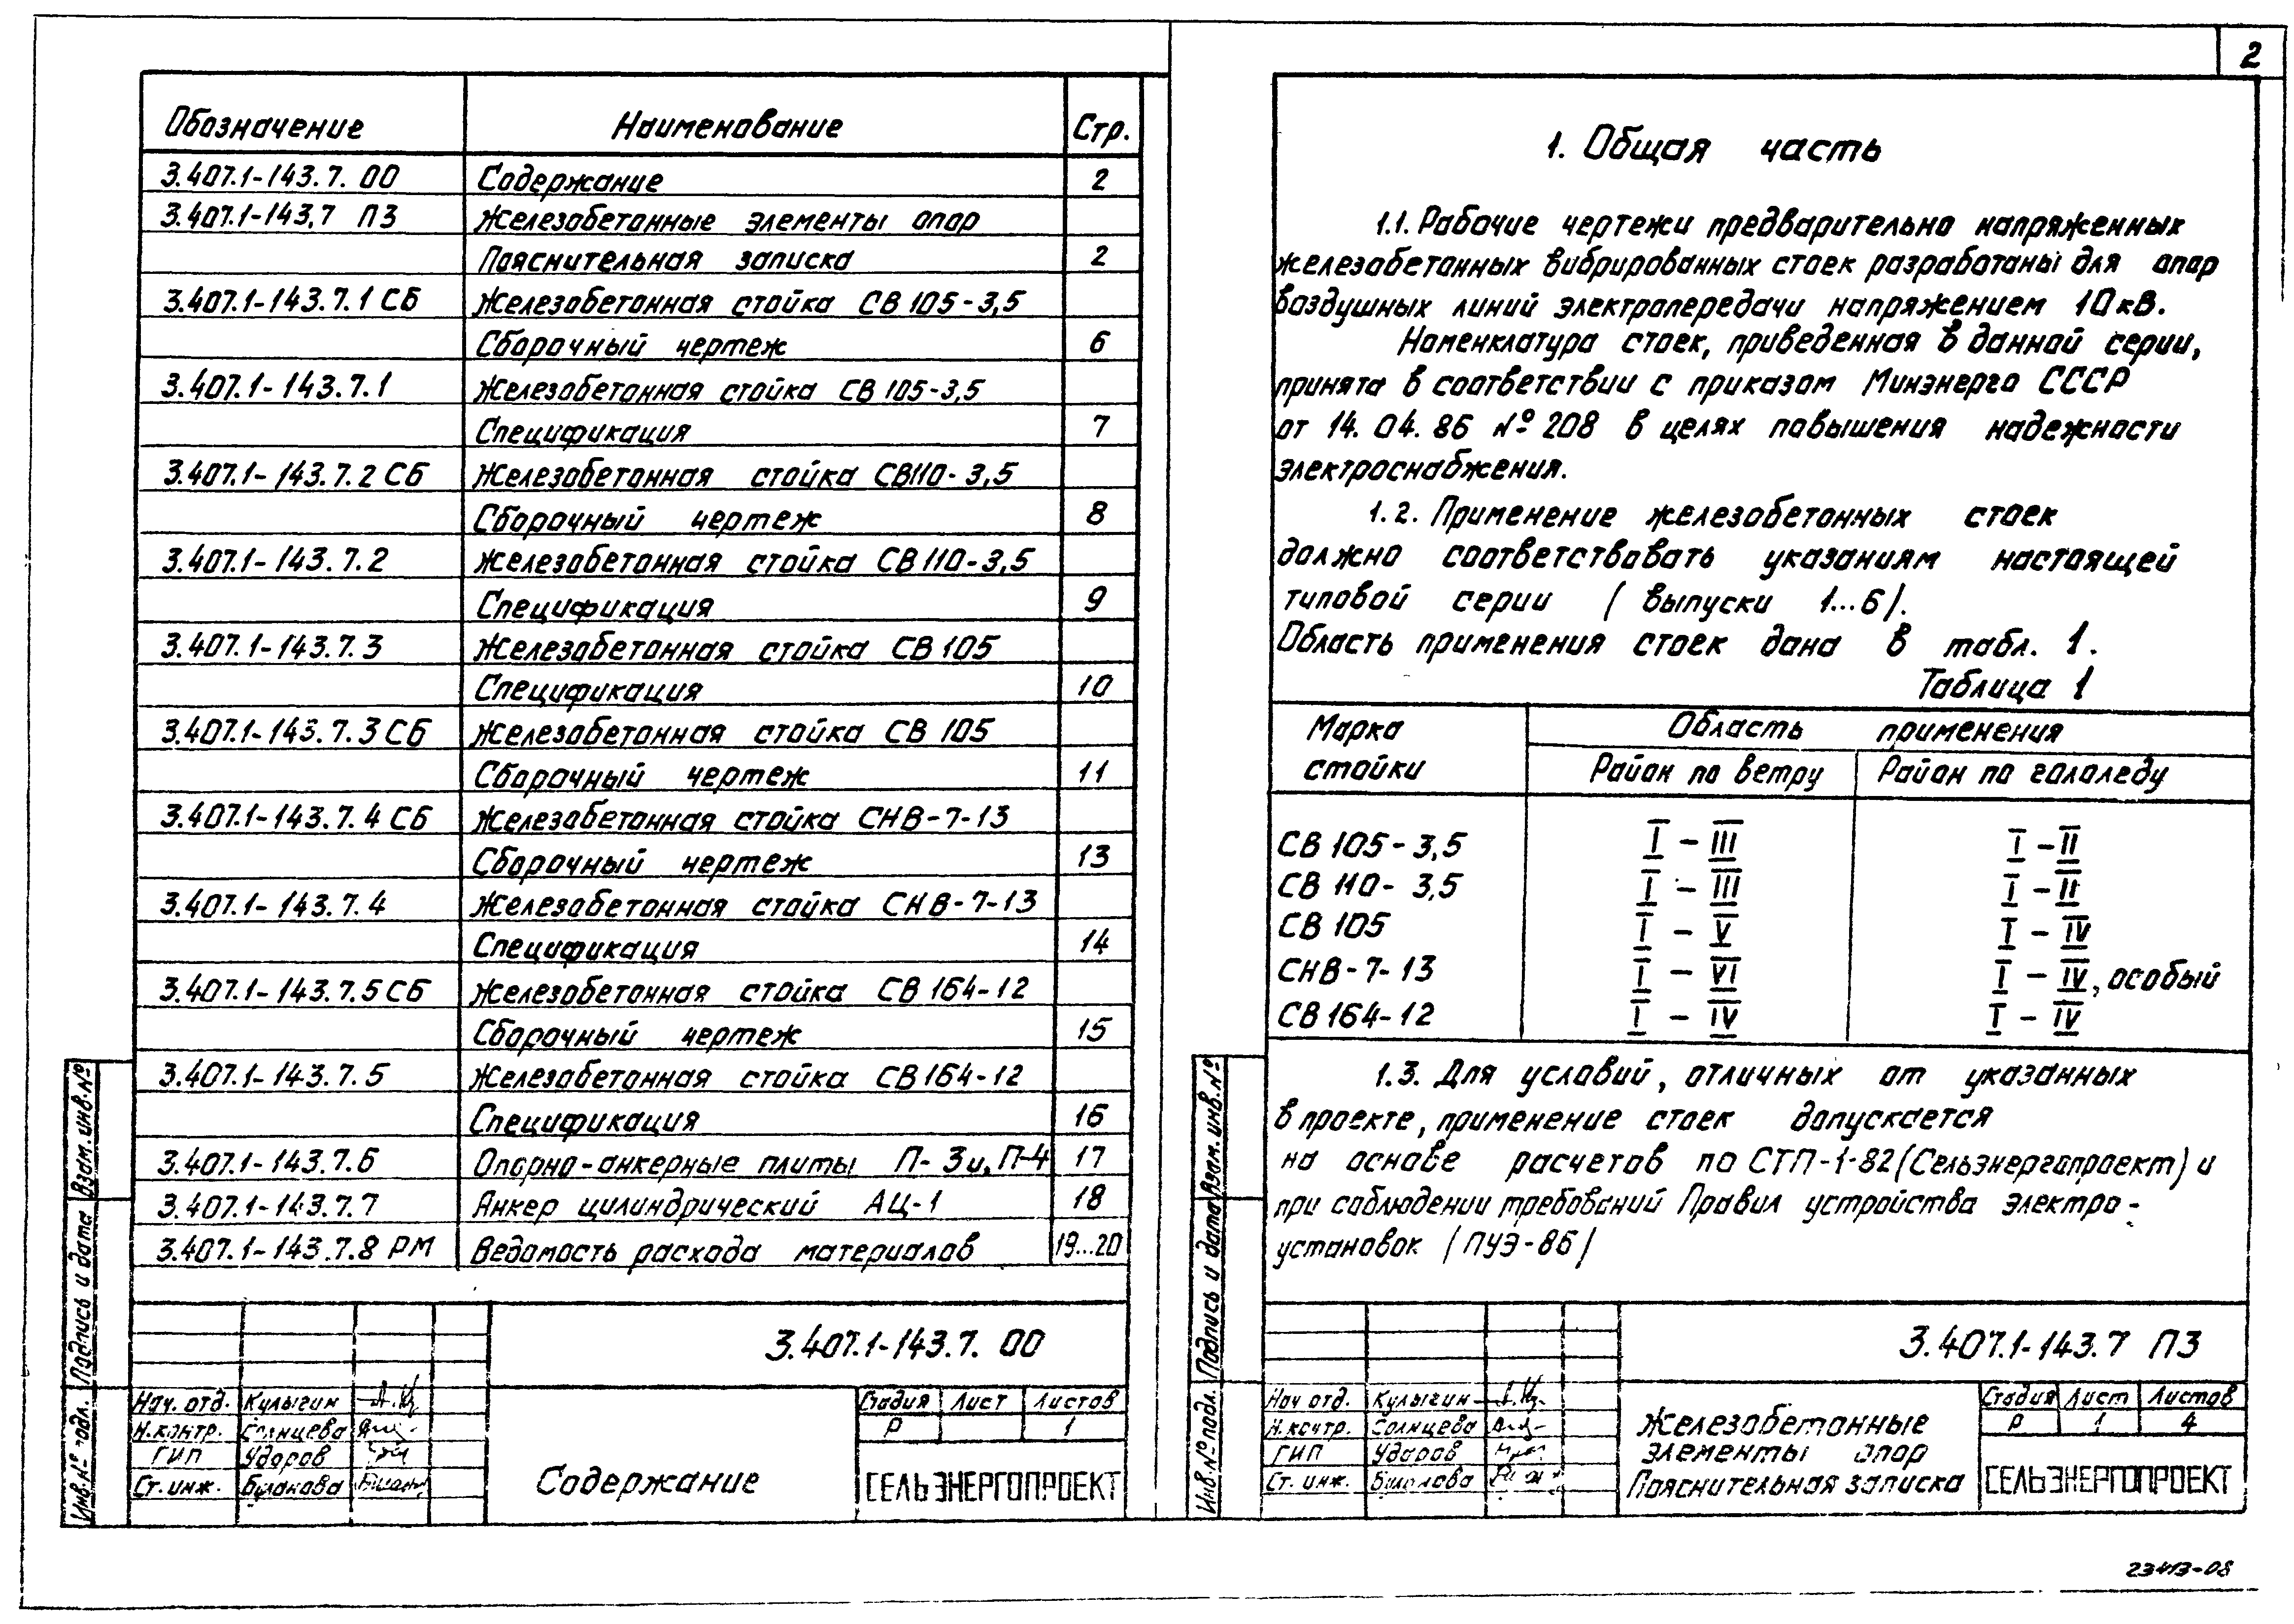 2
Обозначение Наименование Стр.
3.407.1-143.7.00 Содержание 2
3.407.1-143.7 ПЗ Железобетонные элементы опор
Пояснительная записка 2
3.407.1-143.7.1 СБ Железобетонная стойка СВ 105-3,5
Сборочный чертеж 6
3.407.1-143.7.1 Железобетонная стойка СВ 105-3,5
Спецификация 7
3.407.1-143.7.2 СБ Железобетонная стойка СВ110-3,5
Сборочный чертеж 8
3.407.1-143.7.2 Железобетонная стойка СВ 110-3,5
Спецификация 9
3.407.1-143.7.3 Железобетонная стойка СВ 105
Спецификация 10
3.407.1-143.7.3 СБ Железобетонная стойка СВ 105
Сборочный чертеж 11
3.407.1-143.7.4 СБ Железобетонная стойка СНВ-7-13
Сборочный чертеж 13
3.407.1-143.7.4 Железобетонная стойка СНВ-7-13
Спецификация 14
3.407.1-143.7.5 СБ Железобетонная стойка СВ 164-12
Сборочный чертеж 15
3.407.1-143.7.5 Железобетонная стойка СВ 164-12
Спецификация 16
3.407.1-143.7.6 Опорно-анкерные плиты П-3и, П-4 17
3.407.1-143.7.7 Анкер цилиндрический АЦ-1 18
3.407.1-143.7.8 РМ Ведомость расхода материалов 19...20
Взам. инв. №
Подпись и дата
Инв. № подл.
3.407.1-143.7. 00
Нач. отд. Кулыгин
Н. контр. Солнцева
ГИП Ударов
Ст. инж.
Содержание
Стадия Лист Листов
Р 1
СЕЛЬЭНЕРГОПРОЕКТ
1. Общая часть
1.1. Рабочие чертежи предварительно напряженных
железобетонных вибрированных стоек разработаны для опор
воздушных линий электропередачи напряжением 10 кВ.
Номенклатура стоек, приведенная в данной серии,
принята в соответствии с приказом Минэнерго СССР
от 14.04.86 № 208 в целях повышения надежности
электроснабжения.
1.2. Применение железобетонных стоек
должно соответствовать указаниям настоящей
типовой серии (выпуски 1...6).
Область применения стоек дана в табл. 1.
Таблица 1
Марка стойки Область применения
Район по ветру Район по гололеду
СВ 105-3,5 I - III I - II
СВ 110-3,5 I - III I - II
СВ 105 I - V I - IV
СНВ-7-13 I - VI I - IV, особый
СВ 164-12 I - IV I - IV
1.3. Для условий, отличных от указанных
в проекте, применение стоек допускается
на основе расчетов по СТП-1-82 (Сельэнергопроект) и
при соблюдении требований Правил устройства электро-
установок (ПУЭ-86)
Взам. инв. №
Подпись и дата
Инв. № подл.
3.407.1-143.7 ПЗ
Нач отд. Кулыгин
Н. контр. Солнцева
ГИП Ударов
Ст. инж.
Железобетонные
элементы опор
Пояснительная записка
Стадия Лист Листов
Р 1 4
СЕЛЬЭНЕРГОПРОЕКТ
23413-08